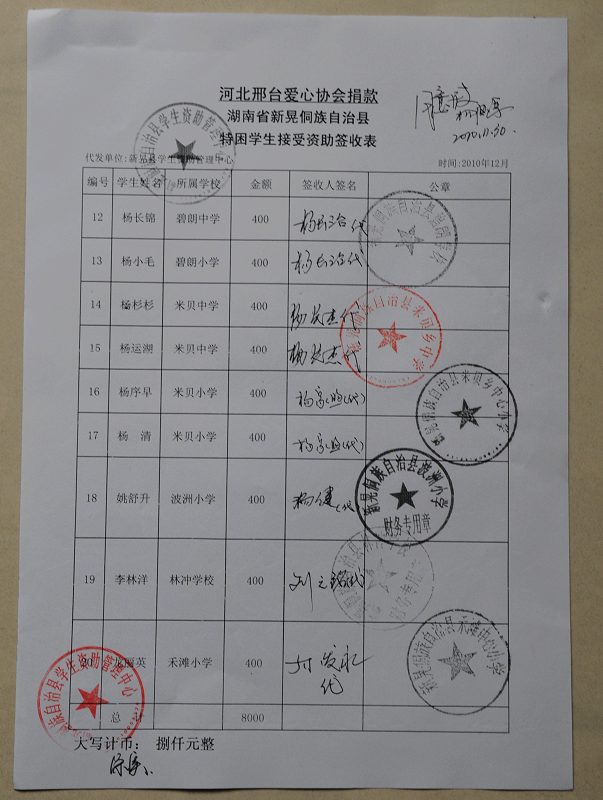 河北邢台爱心协会捐款
湖南省新晃侗族自治县
特困学生接受资助签收表
2010.11.30
代发单位:新晃县学生资助管理中心 时间:2010年12月
编号 学生姓名 所属学校 金额 签收人签名 公章
12 杨长锦 碧朗中学 400 代
13 杨小毛 碧朗小学 400 代
14 杨杉杉 米贝中学 400 代
15 杨运湖 米贝中学 400 代
16 杨序早 米贝小学 400 (代)
17 杨 清 米贝小学 400 (代)
18 姚舒升 波洲小学 400 代
19 李林洋 林冲学校 400 代
丽英 禾滩小学 400 代
总 8000
大写计币: 捌仟元整
新晃侗族自治县学生资助管理中心
新晃侗族自治县米贝乡中学
新晃侗族自治县米贝乡中心小学
新晃侗族自治县波洲小学
财务专用章
新晃侗族自治县禾滩中心小学